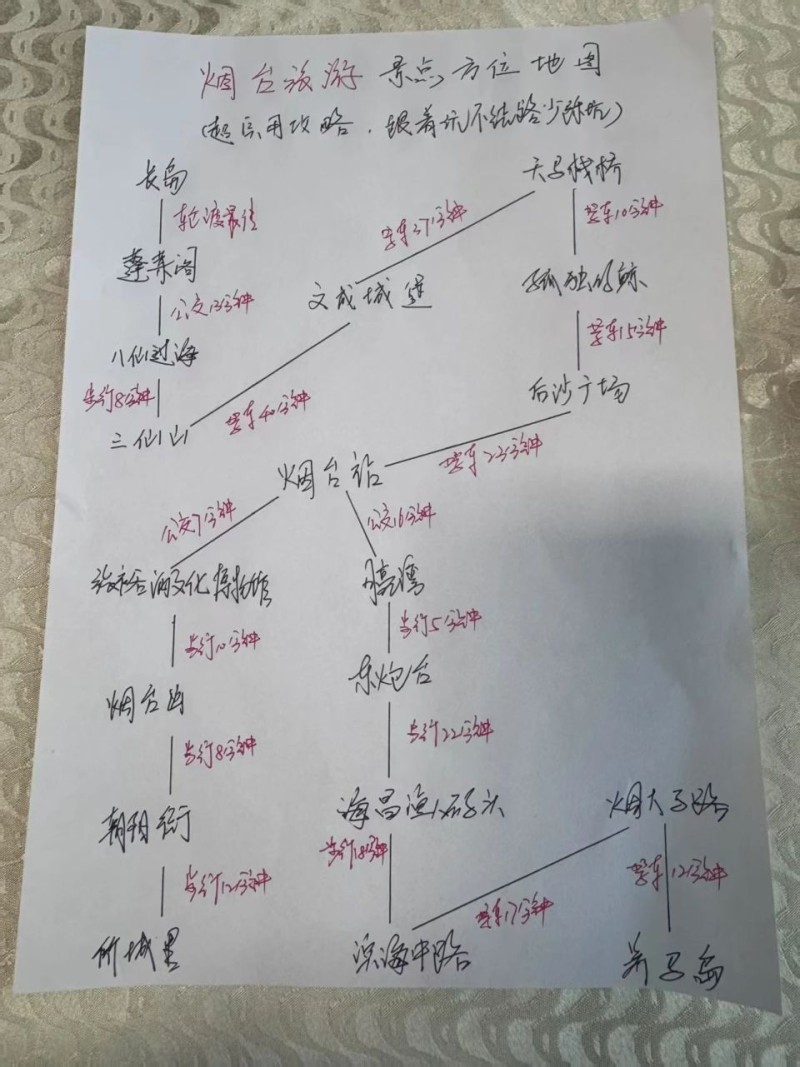 烟台旅游景点方位地图
(超实用攻略，跟着玩不绕路少踩坑)
长岛
天马栈桥
轮渡最佳
驾车37分钟
驾车10分钟
蓬莱阁
文成城堡
孤独的鲸
公交13分钟
驾车15分钟
八仙过海
步行8分钟
后沙广场
驾车40分钟
三仙山
驾车23分钟
烟台站
公交7分钟
公交16分钟
张裕酒文化博物馆
月亮湾
步行10分钟
步行5分钟
东炮台
烟台山
步行22分钟
步行8分钟
海昌渔人码头
烟大马路
朝阳街
步行18分钟
步行12分钟
驾车12分钟
驾车17分钟
所城里
滨海中路
养马岛